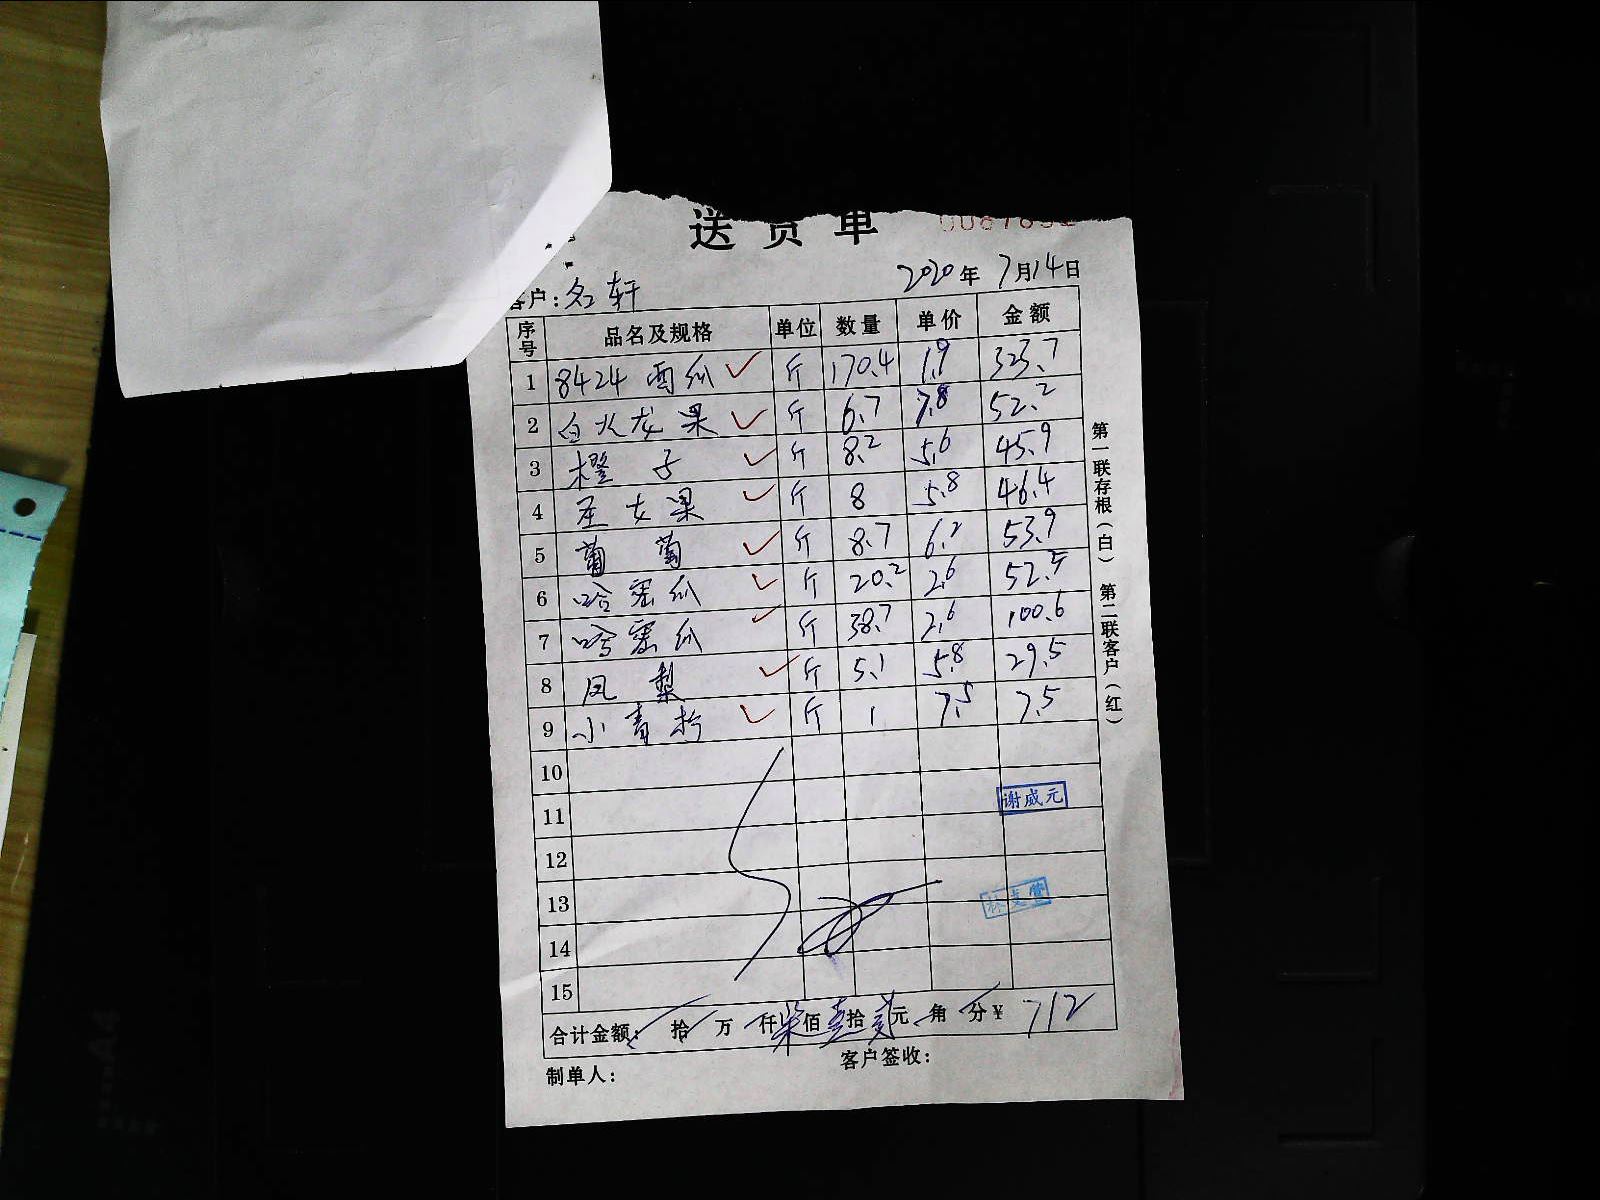 送货单
客户: 名轩 2020年7月14日
序号 品名及规格 单位 数量 单价 金额
1 8424西瓜 ✓ 斤 170.4 1.9 323.7
2 白火龙果 ✓ 斤 6.7 7.8 52.2
3 橙子 ✓ 斤 8.2 5.6 45.9
4 圣女果 ✓ 斤 8 5.8 46.4
5 葡萄 ✓ 斤 8.7 6.2 53.9
6 哈密瓜 ✓ 斤 20.2 2.6 52.5
7 哈密瓜 ✓ 斤 38.7 2.6 100.6
8 凤梨 ✓ 斤 5.1 5.8 29.5
9 小青柠 ✓ 斤 1 7.5 7.5
10
11 谢威元
12
13
14
15
合计金额: 拾 万 仟 柒佰 壹拾 贰元 角 分 ¥ 712
制单人: 客户签收:
第一联存根(白) 第二联客户(红)